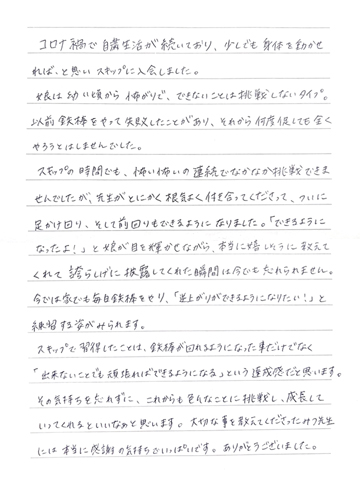 コロナ禍で自粛生活が続いており、少しでも身体を動かせ
れば、と思いスキップに入会しました。
娘は幼い頃から怖がりで、できないことは挑戦しないタイプ。
以前鉄棒をやって失敗したことがあり、それから何度促しても全く
やろうとはしませんでした。
スキップの時間でも、怖い怖いの連続でなかなか挑戦できま
せんでしたが、先生がとにかく根気よく付き合ってくださって、ついに
足かけ回り、そして前回りもできるようになりました。「できるように
なったよ！」と娘が目を輝かせながら、本当に嬉しそうに教えて
くれて誇らしげに披露してくれた瞬間は今でも忘れられません。
今では家でも毎日鉄棒をやり、「逆上がりができるようになりたい！」と
練習する姿がみられます。
スキップで習得したことは、鉄棒が回れるようになった事だけでなく
「出来ないことでも頑張ればできるようになる」という達成感だと思います。
その気持ちを忘れずに、これからも色んなことに挑戦し、成長して
いってくれるといいなめと思います。大切な事を教えてくださったみつ先生
には本当に感謝の気持ちでいっぱいです。ありがとうございました。